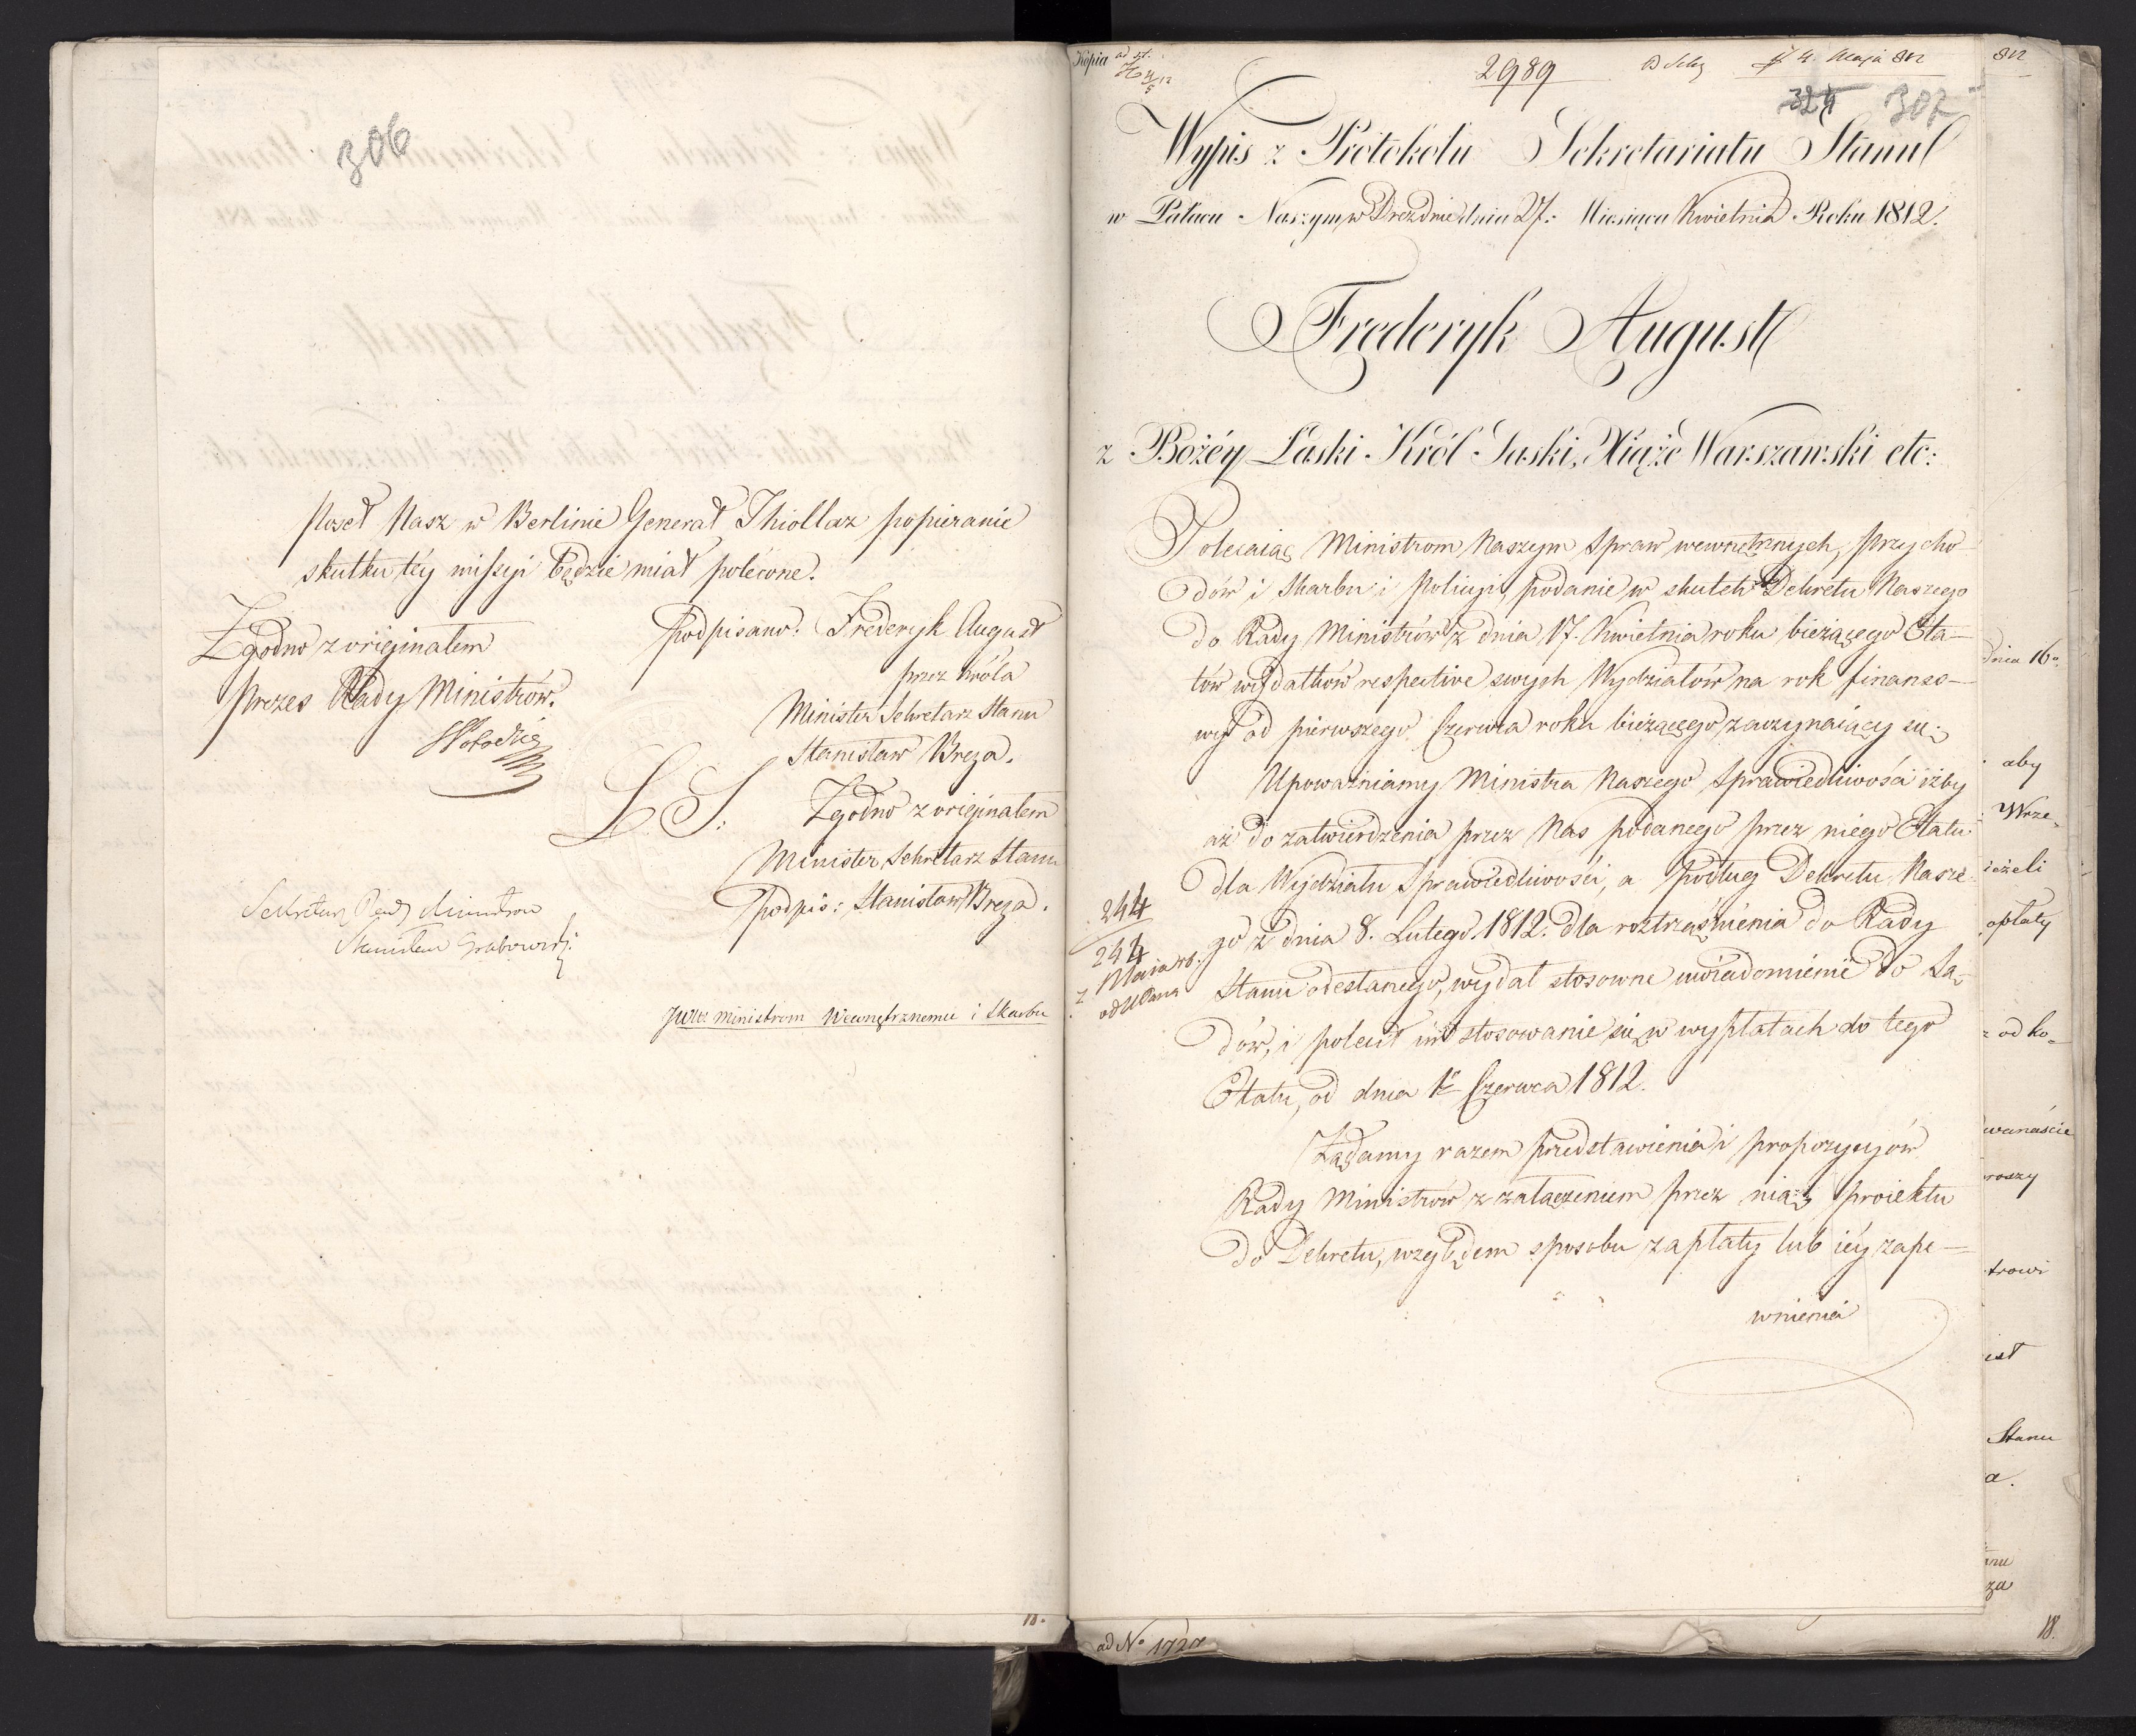 306
Poseł Nasz w Berlinie Generał Thiollaz popieranie
skutku téy missyi będzie miał polecone.
Zgodno z originałem
Prezes Rady Ministrów.
podpisano: Frederyk August
przez Króla
Minister Sekretarz Stanu
Stanisław Breza.
L. S.
Zgodno z originałem
Minister Sekretarz Stanu
podpis: Stanisław Breza.
Sekretarz Rady Ministrow
Stanisław Grabowski
Ministrom Wewnętrznemu i Skarbu
18.
Kopia ad
2989
4. Maja 812
324 307
Wypis z Protokołu Sekretariatu Stanu
w Pałacu Naszym w Dreznie dnia 27. Miesiąca Kwietnia Roku 1812.
Frederyk August
z Bożéy Łaski Król Saski, Xiąże Warszawski etc:
Polecaiąc Ministrom Naszym Spraw wewnętrznych, Przycho-
dów i Skarbu i Policyi, podanie w skutek Dekretu Naszego
do Rady Ministrów z dnia 17. Kwietnia roku bieżącego Eta-
tów wydatków respective swych Wydziałów na rok finanso-
wy od pierwszego Czerwca roku bieżącego zaczynaiący się;
Upoważniamy Ministra Naszego Sprawiedliwości iżby
aż do zatwierdzenia przez Nas podanego przez niego Etatu
dla Wydziału Sprawiedliwości, a podług Dekretu Nasze-
go z dnia 8. Lutego 1812. dla roztrząśnienia do Rady
Stanu odesłanego, wydał stosowne uwiadomienie do Są-
dów, i polecił im stosowanie się w wypłatach do tego
Etatu, od dnia 1º Czerwca 1812.
Żądamy razem przedstawienia i propozycyów
Rady Ministrów z załączeniem przez nią proiektu
do Dekretu, względem sposobu zapłaty lub iéy zape-
wnienia
244
244
z Maia rb.
ad No 1727
812
dnia 16º
aby
Wrze-
ieżeli
opłaty
od ko-
wanaście
roszy
trowi
est
Stanu
a.
anu
za
18.